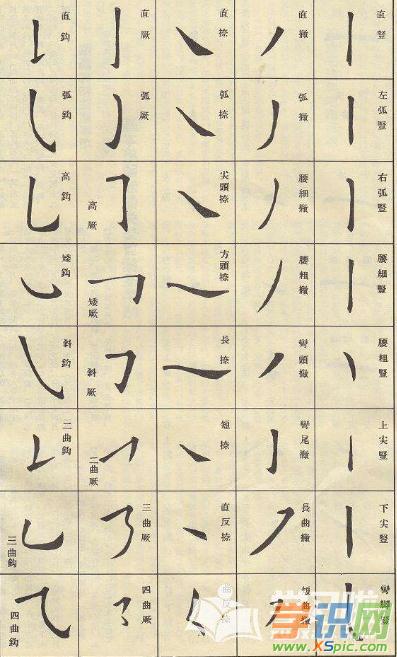 直豎
左弧豎
右弧豎
腰細豎
腰粗豎
上尖豎
下尖豎
直撇
弧撇
腰細撇
腰粗撇
彎頭撇
彎尾撇
長曲撇
短曲撇
直捺
弧捺
尖頭捺
方頭捺
長捺
短捺
直反捺
直厥
弧厥
高厥
矮厥
斜厥
二曲厥
三曲厥
四曲厥
直鈎
弧鈎
高鈎
矮鈎
斜鈎
二曲鈎
三曲鈎
四曲鈎
学识网
www.XSpic.com